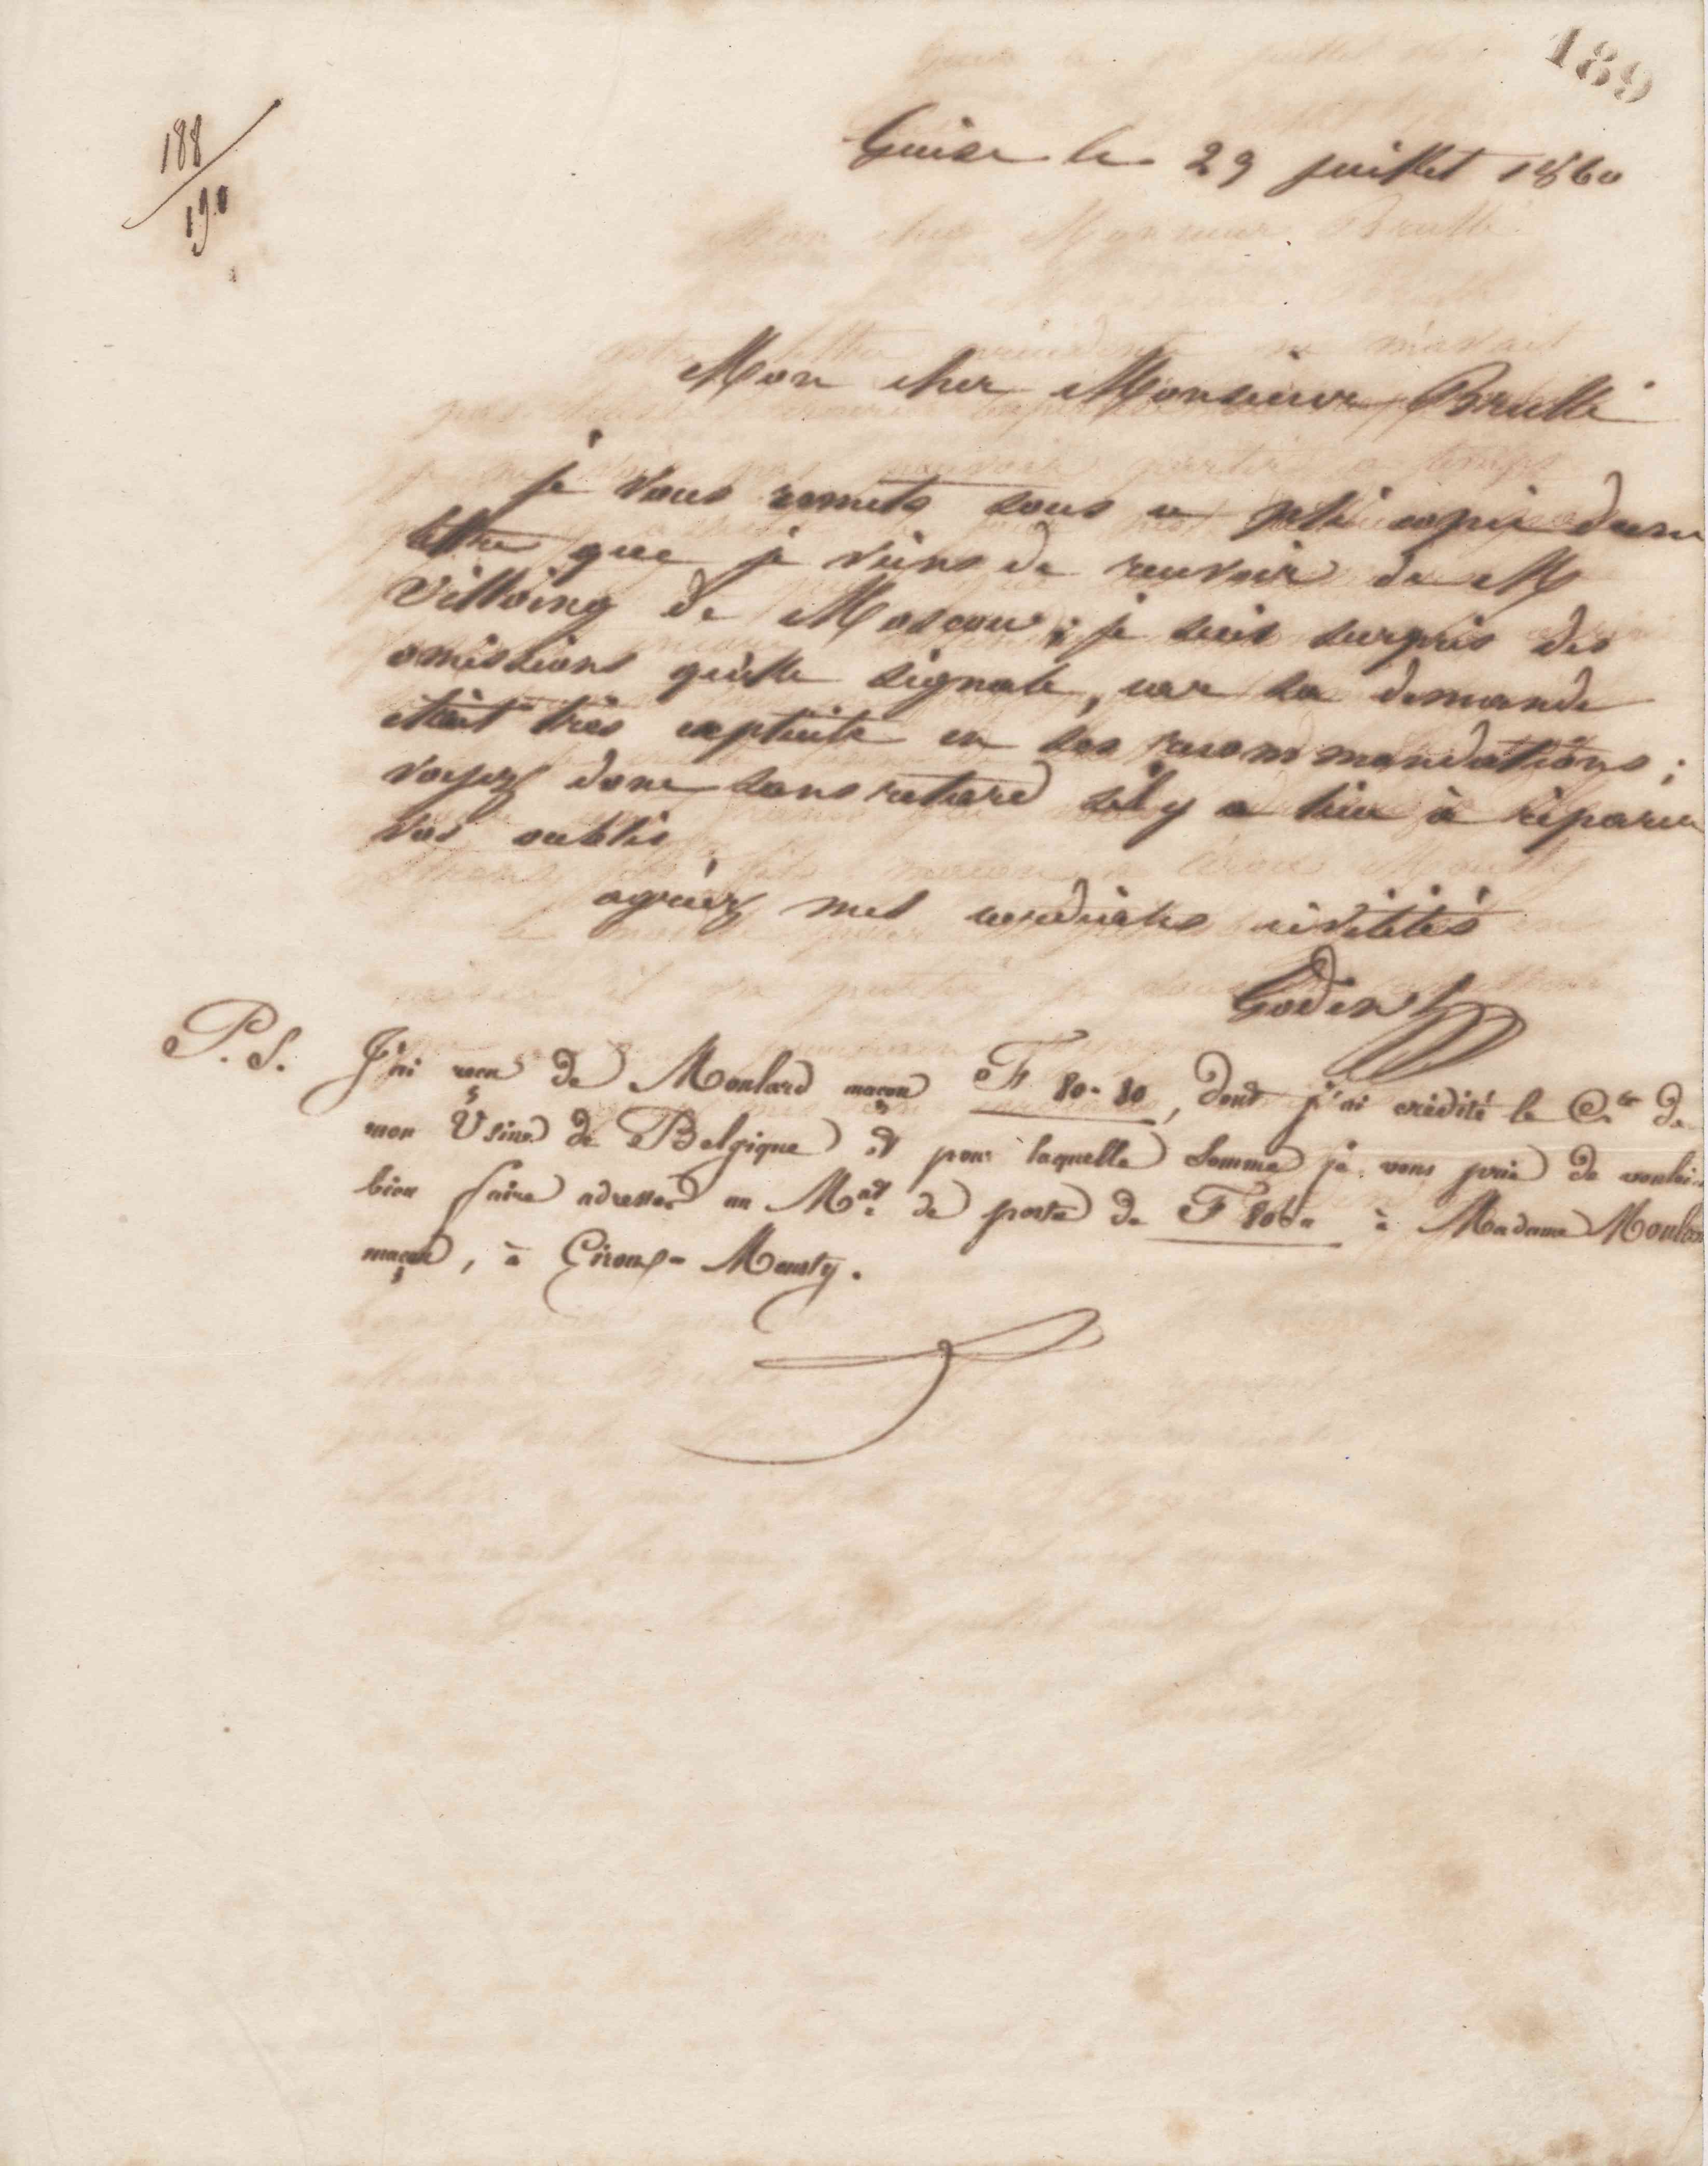 189
188
190
Guise le 29 juillet 1860
Mon cher Monsieur Brullé
je vous remets sous ce pli copie d'une
lettre que je viens de recevoir de M
Villoing de Moscou ; je suis surpris des
omissions qu'elle signale, car sa demande
était très explicite en ses recommandations ;
voyez donc sans retard s'il y a lieu à réparer
vos oublis
agréez mes cordiales civilités
Godin
P. S. J'ai reçu de Moulard maçon F 80.80, dont j'ai crédité le Cte de
mon Usine de Belgique et pour laquelle somme je vous prie de vouloir
bien faire adresser un Mat de poste de à Madame Moulard
maçon, à Ciroux-Mousty.